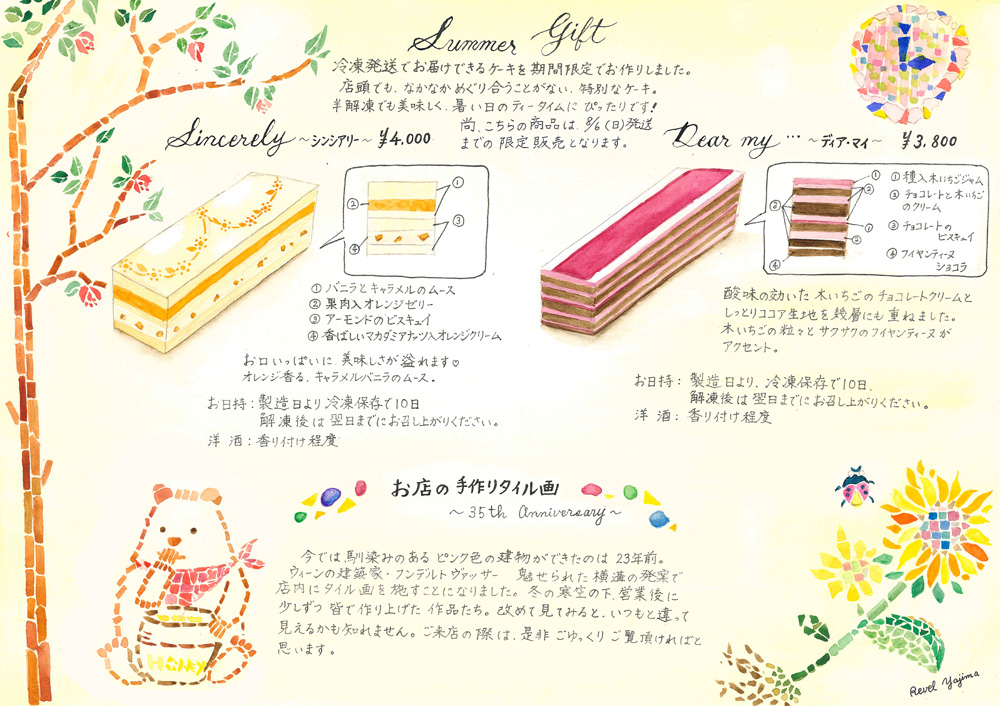 Summer Gift
冷凍発送でお届けできるケーキを期間限定でお作りしました。
店頭でも、なかなかめぐり合うことがない、特別なケーキ。
半解凍でも美味しく、暑い日のティータイムにぴったりです!
尚、こちらの商品は、8/6(日)発送
までの限定販売となります。
Sincerely ～シンシアリー～ ¥4.000
①
②
③
④
① バニラとキャラメルのムース
② 果肉入オレンジゼリー
③ アーモンドのビスキュイ
④ 香ばしいマカダミアナッツ入オレンジクリーム
お口いっぱいに、美味しさが溢れます♡
オレンジ香る、キャラメルバニラのムース。
お日持:製造日より冷凍保存で10日
解凍後は翌日までにお召し上がりください。
洋酒:香り付け程度
Dear my … ～ディア・マイ～ ¥3,800
①
②
③
②
④
① 種入木いちごジャム
② チョコレートと木いちご
のクリーム
③ チョコレートの
ビスキュイ
④ フイヤンティーヌ
ショコラ
酸味の効いた木いちごのチョコレートクリームと
しっとりココア生地を幾層にも重ねました。
木いちごの粒々とサクサクのフイヤンティーヌが
アクセント。
お日持:製造日より、冷凍保存で10日、
解凍後は翌日までにお召し上がりください。
洋酒:香り付け程度
お店の手作りタイル画
～35th Anniversary～
今では、馴染みのあるピンク色の建物ができたのは23年前。
ウィーンの建築家・フンデルトヴァッサー 魅せられた横溝の発案で
店内にタイル画を施すことになりました。冬の寒空の下、営業後に
少しずつ皆で作り上げた作品たち。改めて見てみると、いつもと違って
見えるかも知れません。ご来店の際は、是非ごゆっくりご覧頂ければと
思います。
HONEY
Revel Yajima